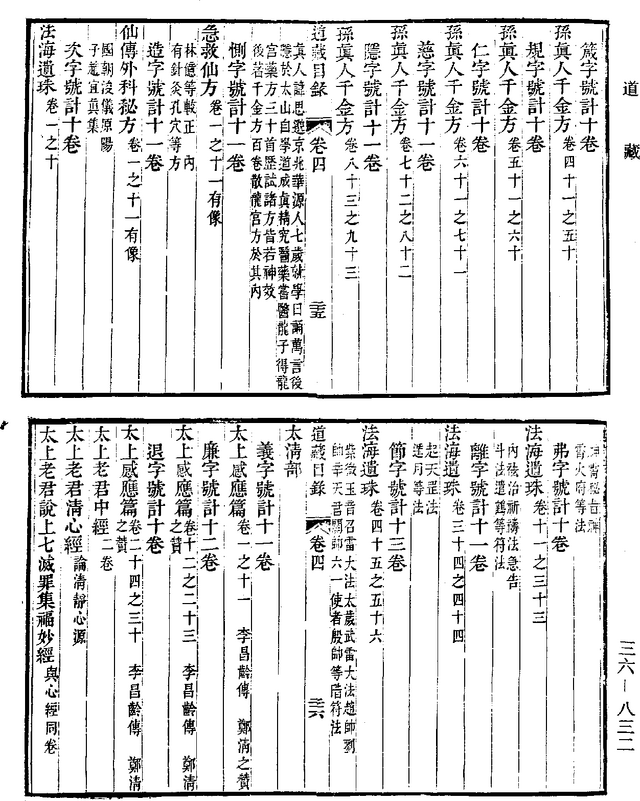 道藏
箴字號計十卷
孫眞人千金方 卷四十一之五十
規字號計十卷
孫眞人千金方 卷五十一之六十
仁字號計十一卷
孫眞人千金方 卷六十一之七十一
慈字號計十一卷
孫眞人千金方 卷七十二之八十二
隱字號計十一卷
孫眞人千金方 卷八十三之九十三
道藏目錄 卷四 三十五
眞人諱思邈京兆華源人七歲就學日誦萬言後
隱於太山自學道成眞精究醫藥當醫龍子得龍
宮藥方三十首歷試諸方皆若神效
後著千金方百卷散龍宮方於其內
惻字號計十一卷
急救仙方 卷一之十一有像
林億等較正 內
有針灸孔穴等方
造字號計十一卷
仙傳外科秘方 卷一之十一有像
國朝浚儀原陽
子趙宜眞集
次字號計十卷
法海遺珠 卷一之十
雷火府等法
弗字號計十卷
法海遺珠 卷十一之三十三
內祛治祈禱法急告
斗法遣鶴等符法
離字號計十一卷
法海遺珠 卷三十四之四十四
起天罡法
運用等法
節字號計十三卷
法海遺珠 卷四十五之五十六
紫微玉音召雷大法太歲武雷大法趙帥劉
帥華天君關帥六一使者殷帥等階符法
道藏目錄 卷四 三十六
太清部
義字號計十一卷
太上感應篇 卷一之十一 李昌齡傳 鄭清之贊
廉字號計十二卷
太上感應篇 卷十二之二十三 李昌齡傳 鄭清之贊
退字號計十卷
太上感應篇 卷二十四之三十 李昌齡傳 鄭清之贊
太上老君中經 二卷
太上老君清心經 論清靜心源
太上老君說上七滅罪集福妙經 與心經同卷
三六—八三二